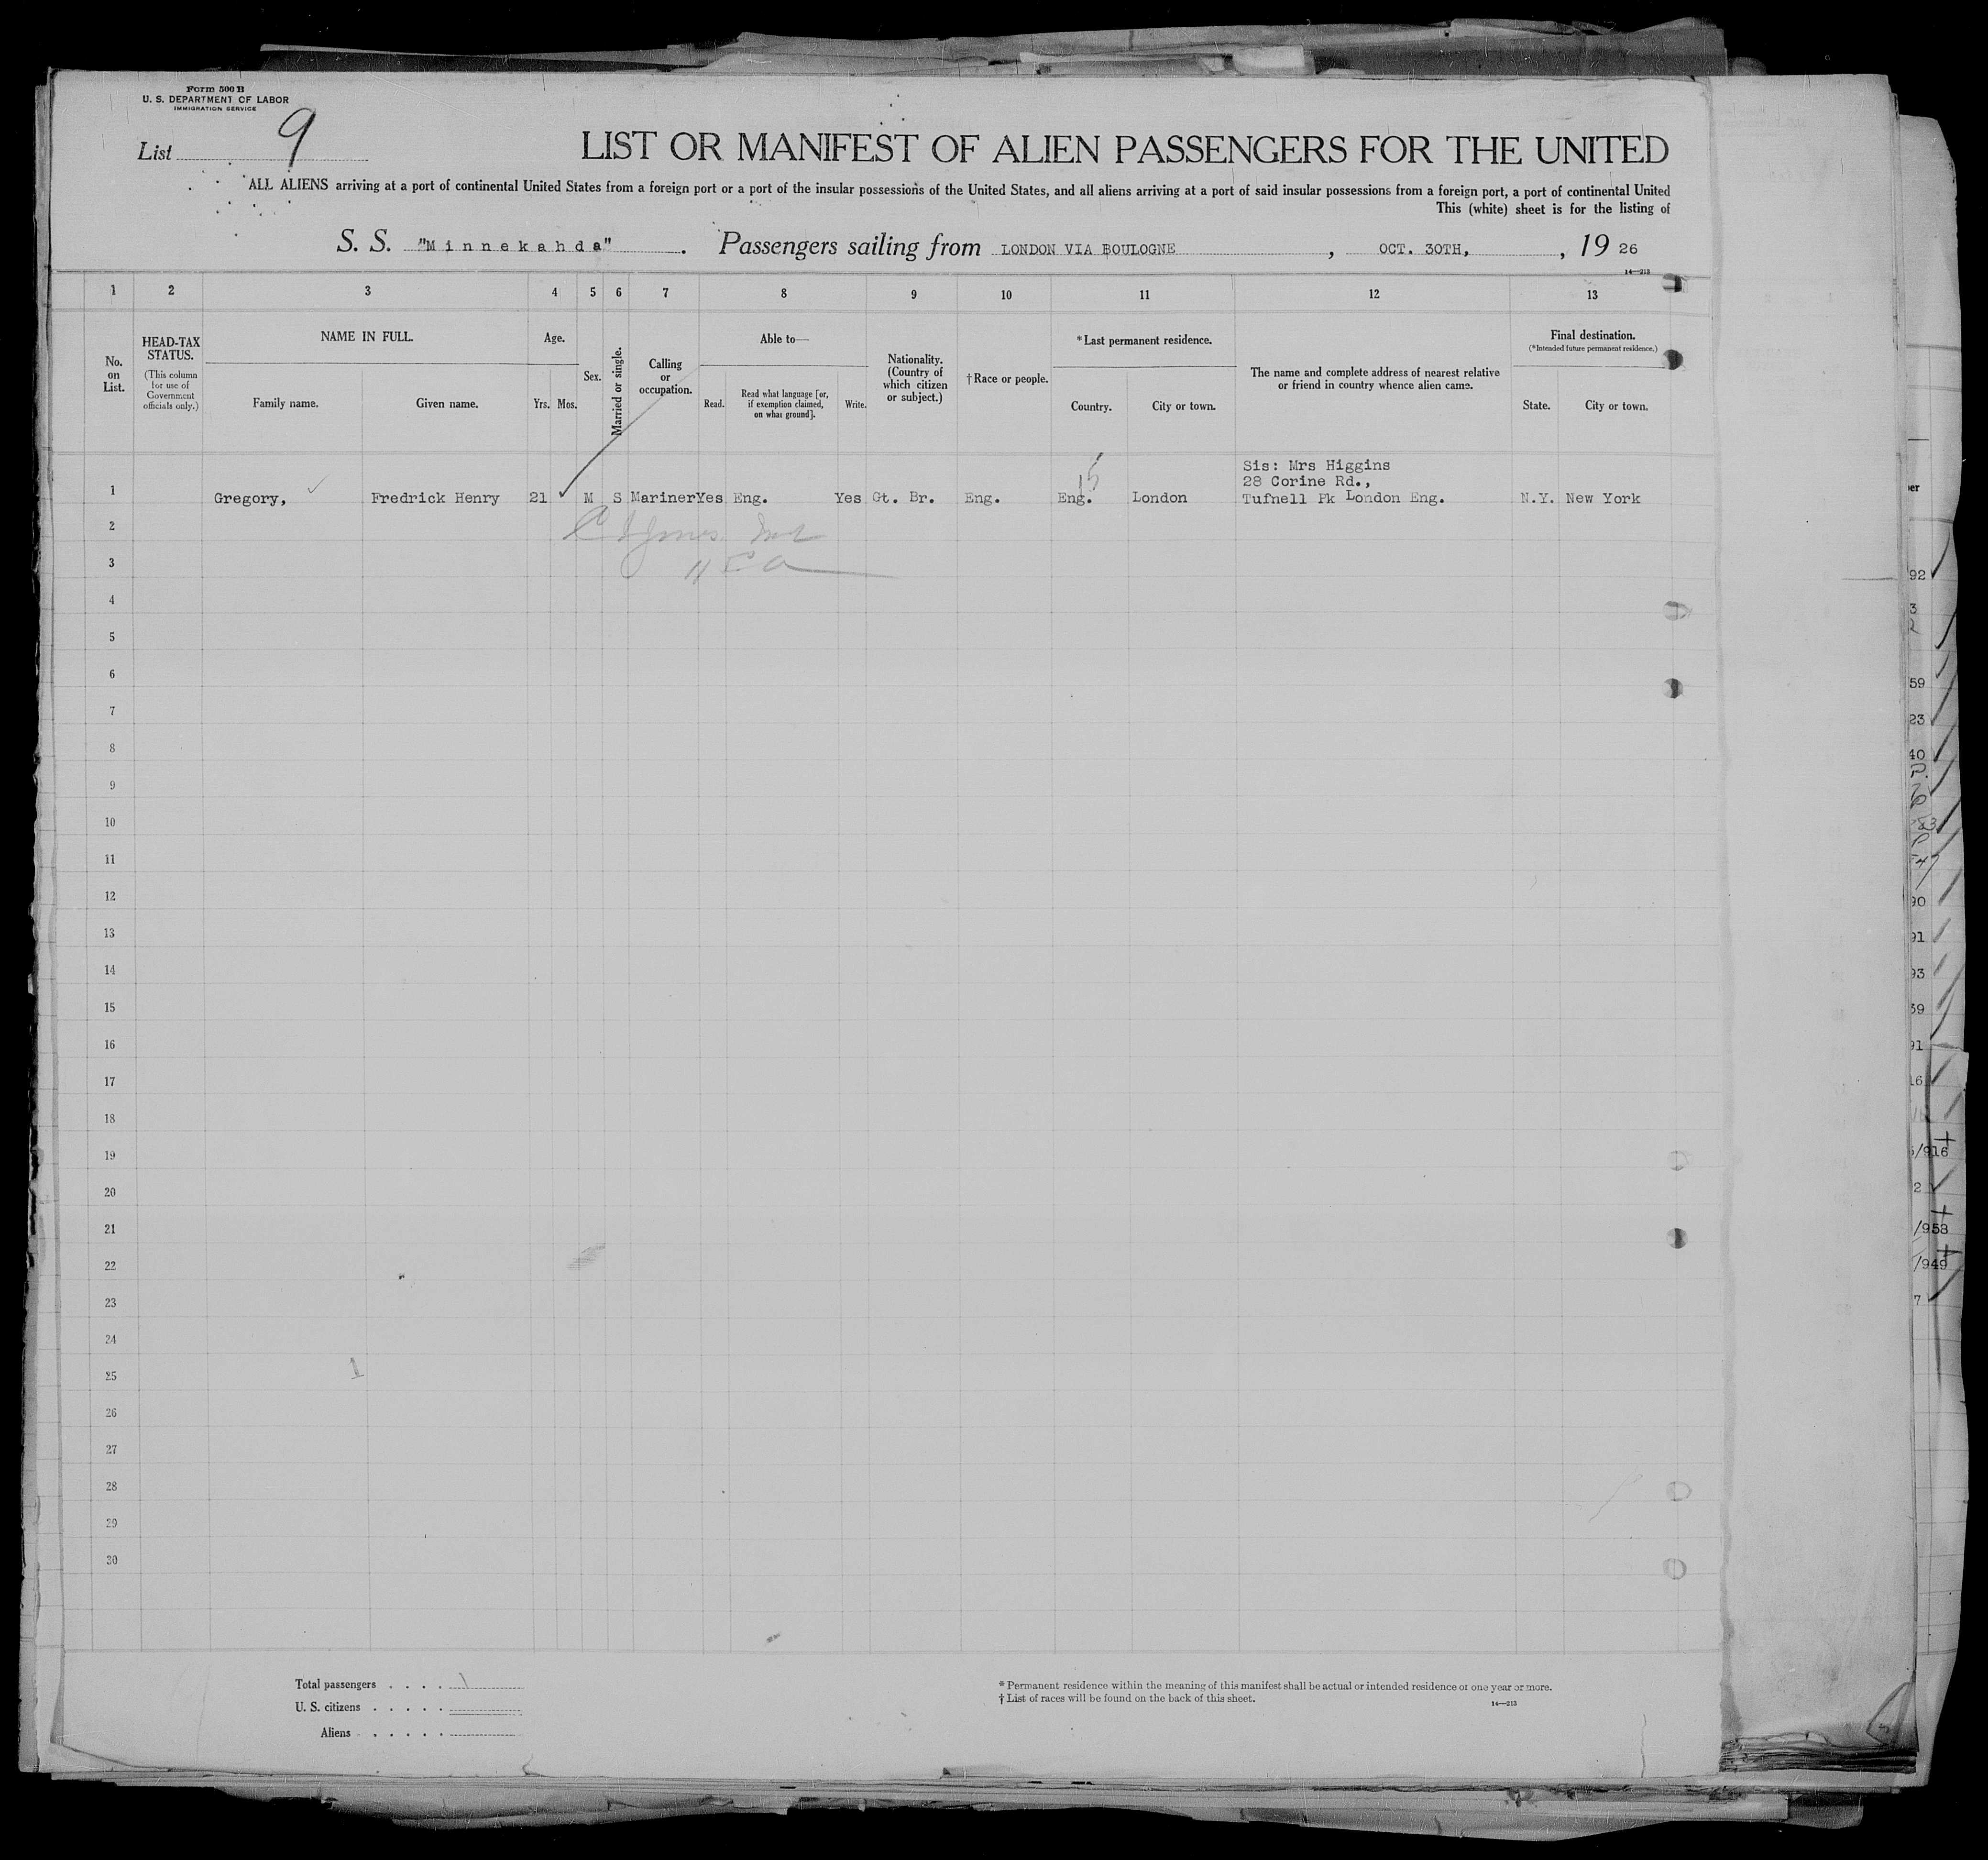 Form 500 B
U. S. DEPARTMENT OF LABOR
IMMIGRATION SERVICE
List 9
LIST OR MANIFEST OF ALIEN PASSENGERS FOR THE UNITED
ALL ALIENS arriving at a port of continental United States from a foreign port or a port of the insular possessions of the United States, and all aliens arriving at a port of said insular possessions from a foreign port, a port of continental United
This (white) sheet is for the listing of
S. S. "Minnekahda". Passengers sailing from LONDON VIA BOULOGNE, OCT. 30TH, , 19 26
14—213
1 2 3 4 5 6 7 8 9 10 11 12 13
No. on List.
HEAD-TAX STATUS.
(This column for use of Government officials only.)
NAME IN FULL.
Family name. Given name.
Age.
Yrs. Mos.
Sex.
Married or single.
Calling or occupation.
Able to—
Read. Read what language [or, if exemption claimed, on what ground]. Write.
Nationality. (Country of which citizen or subject.)
†Race or people.
*Last permanent residence.
Country. City or town.
The name and complete address of nearest relative or friend in country whence alien came.
Final destination.
(*Intended future permanent residence.)
State. City or town.
Sis: Mrs Higgins
28 Corine Rd.,
1 Gregory, Fredrick Henry 21 M S Mariner Yes Eng. Yes Gt. Br. Eng. Eng. London Tufnell Pk London Eng. N.Y. New York
2
3
4
5
6
7
8
9
10
11
12
13
14
15
16
17
18
19
20
21
22
23
24
25
26
27
28
29
30
Total passengers . . . .
U. S. citizens . . . . .
Aliens . . . . .
* Permanent residence within the meaning of this manifest shall be actual or intended residence of one year or more.
† List of races will be found on the back of this sheet.
14—213